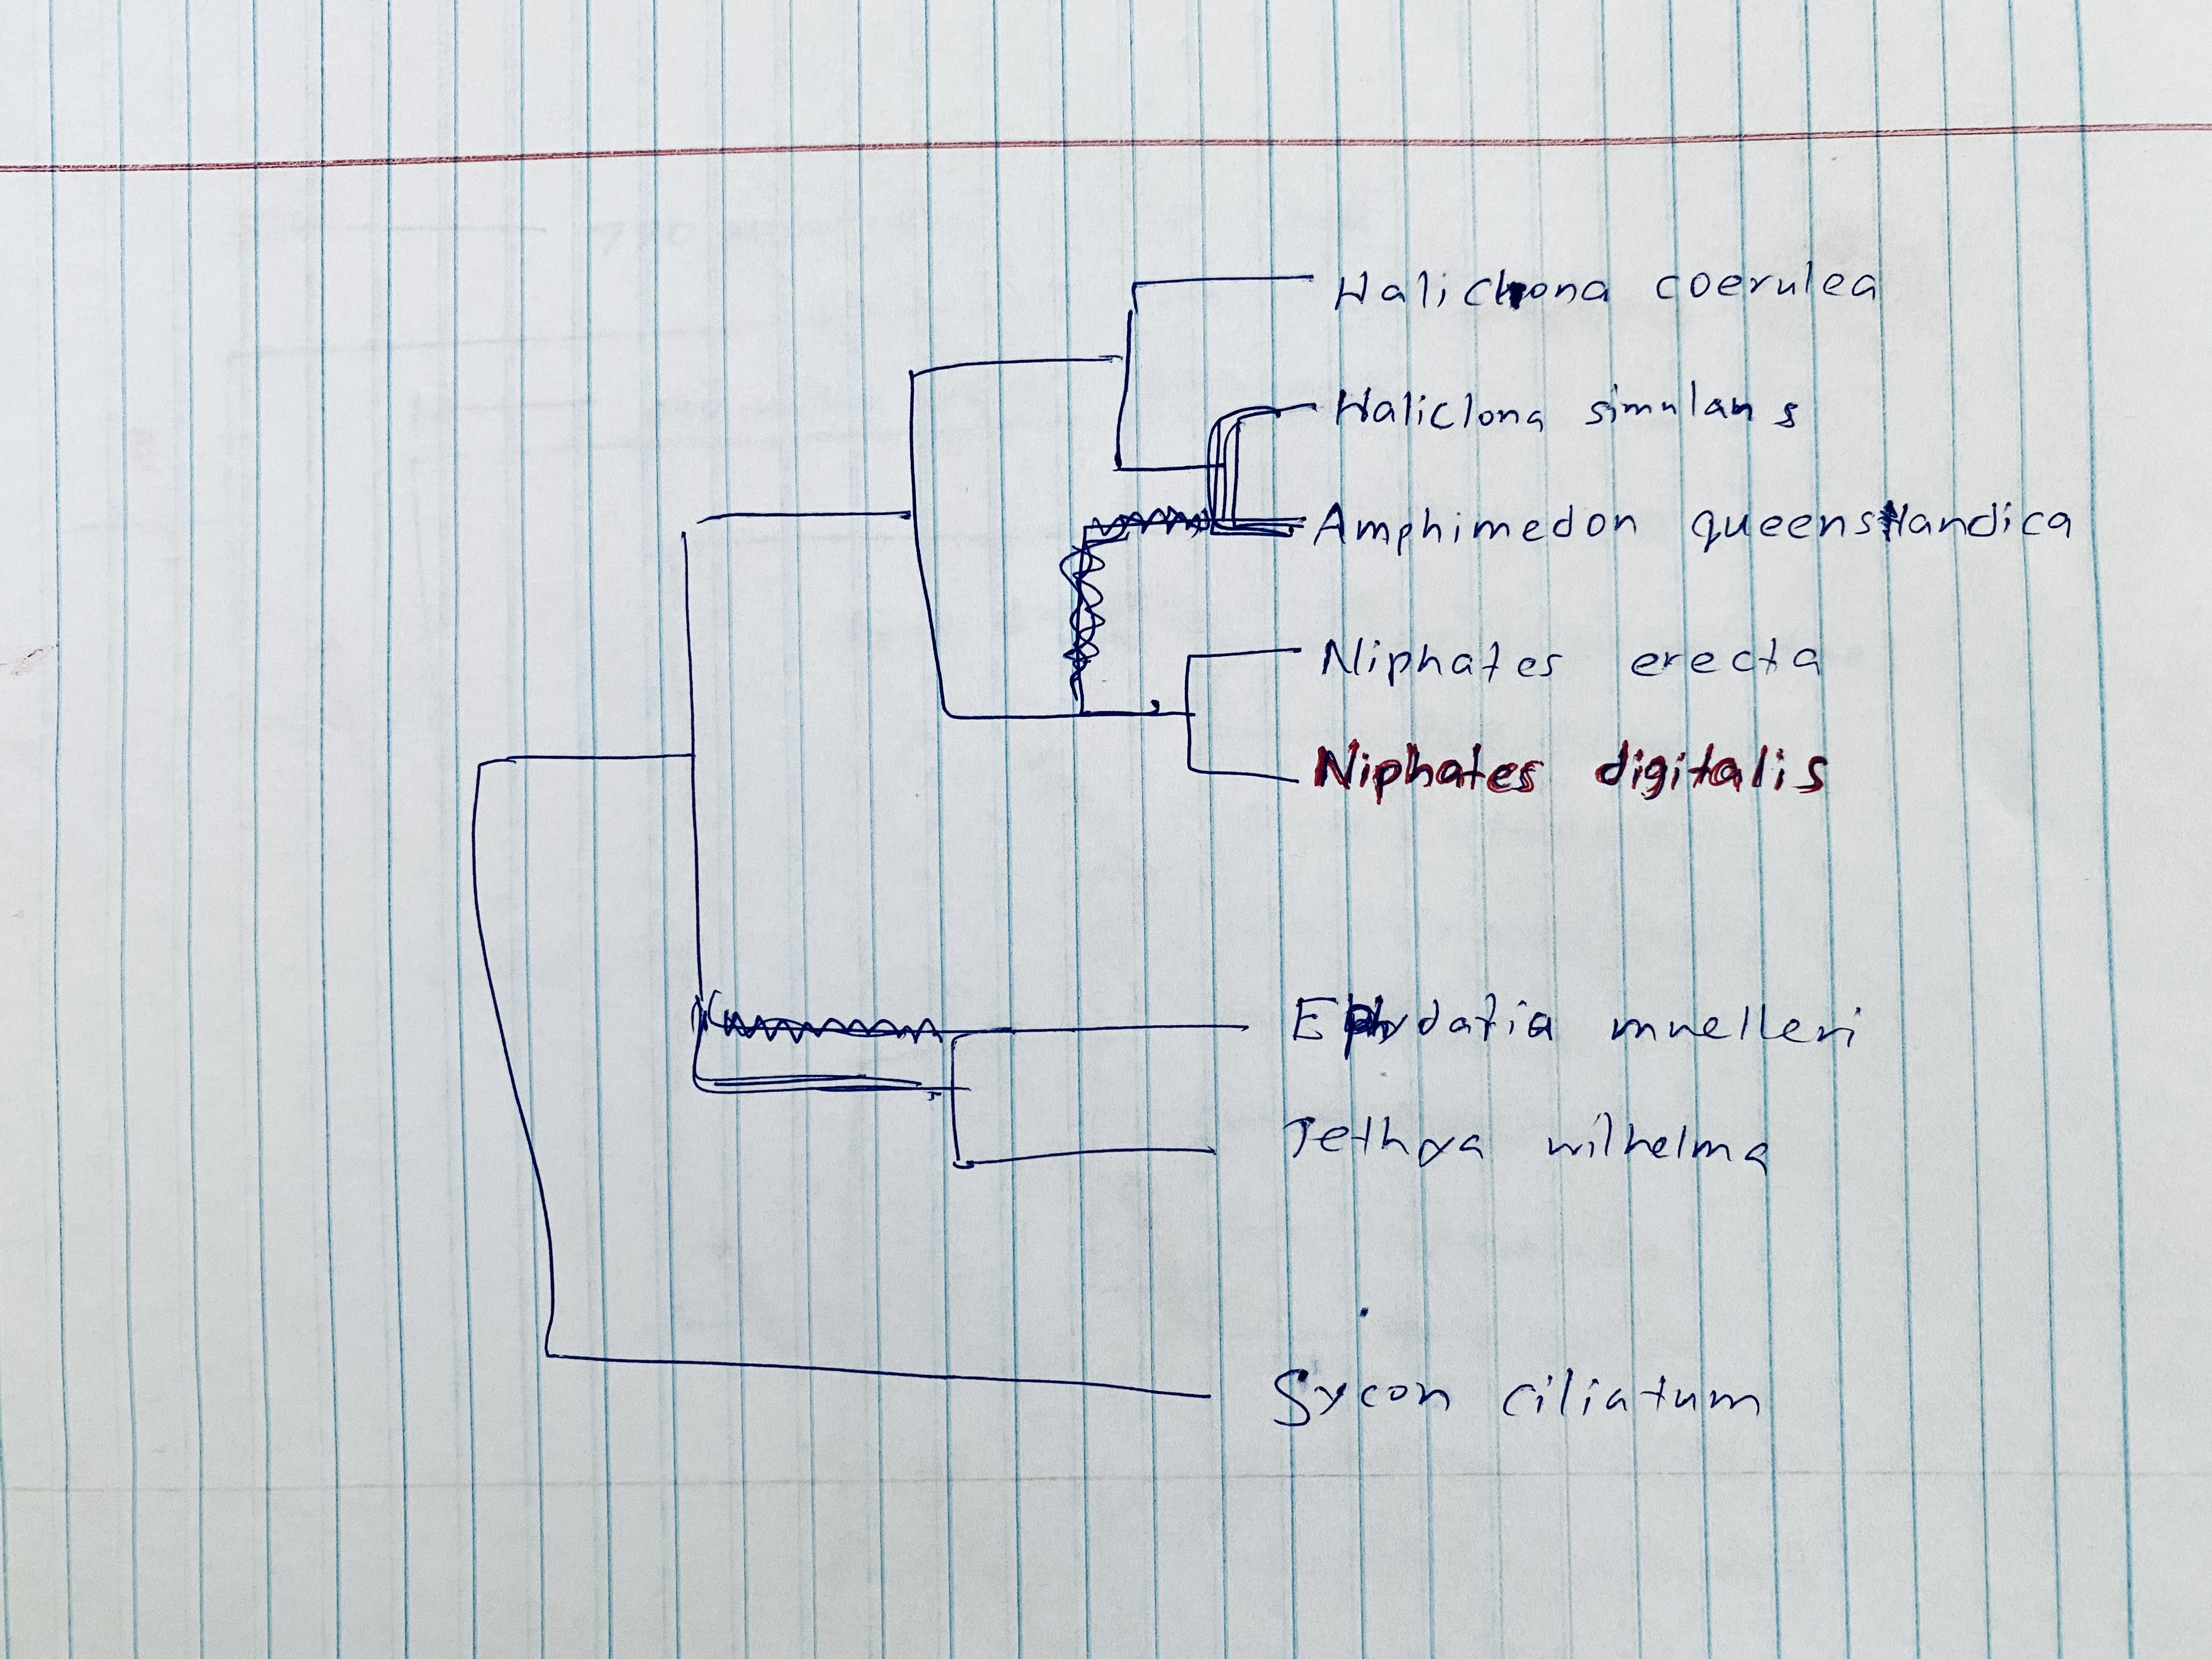 Haliclona coerulea
Haliclona simulans
Amphimedon queenslandica
Niphates erecta
Niphates digitalis
Ephydatia muelleri
Tethya wilhelma
Sycon ciliatum